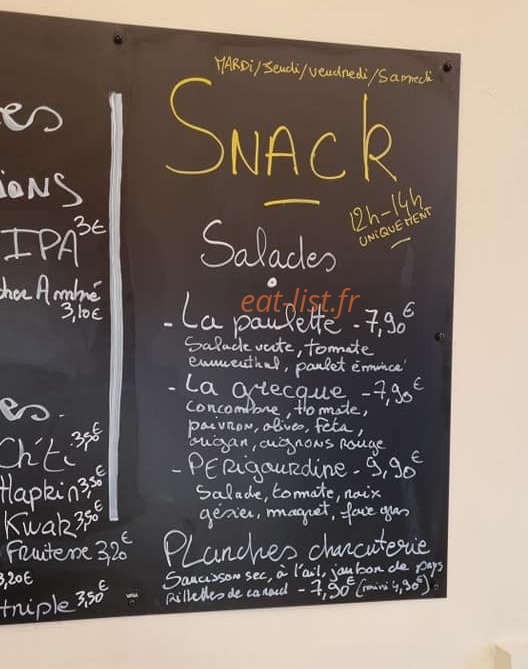 es
ions
3€
IPA
cher Ambré
3,10€
es.
Ch'ti 3,50€
Hapkin 3,50€
Kwak 3,50€
Fruitesse 3,20€
3,20€
triple 3,50€
MARDI/Jeudi/vendredi/Samedi
SNACK
12h-14h
UNIQUEMENT
Salades
eat-list.fr
- La paulette - 7,90€
Salade verte, tomate
emmenthal, poulet émincé
- La grecque - 7,90€
concombre, tomate,
poivron, olives, feta,
origan, oignons rouge
- PERigourdine - 9,90€
Salade, tomate, noix
gésier, magret, foie gras
PLanches charcuterie
Saucisson sec, à l'ail, jambon de pays
Rillettes de canard - 7,90€ (mini 4,90€)